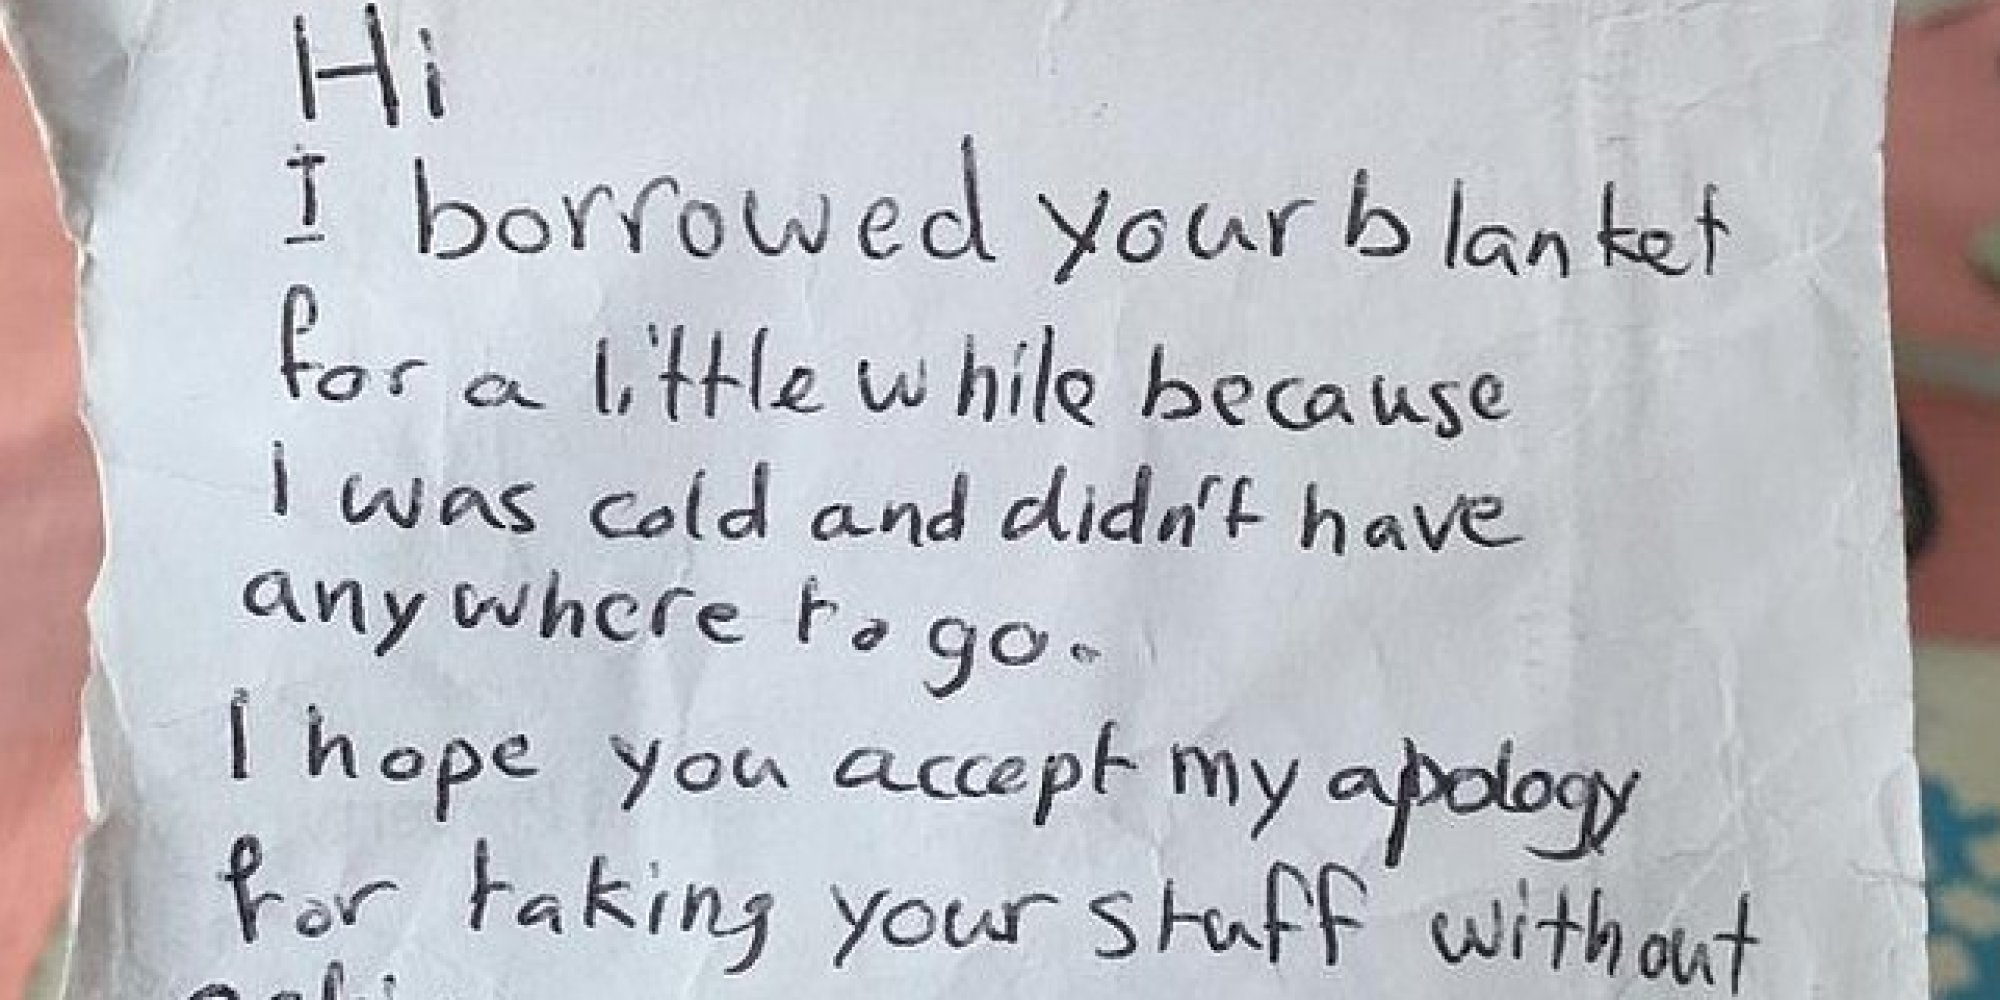 Hi
I borrowed your blanket
for a little while because
I was cold and didn't have
anywhere to go.
I hope you accept my apology
for taking your stuff without